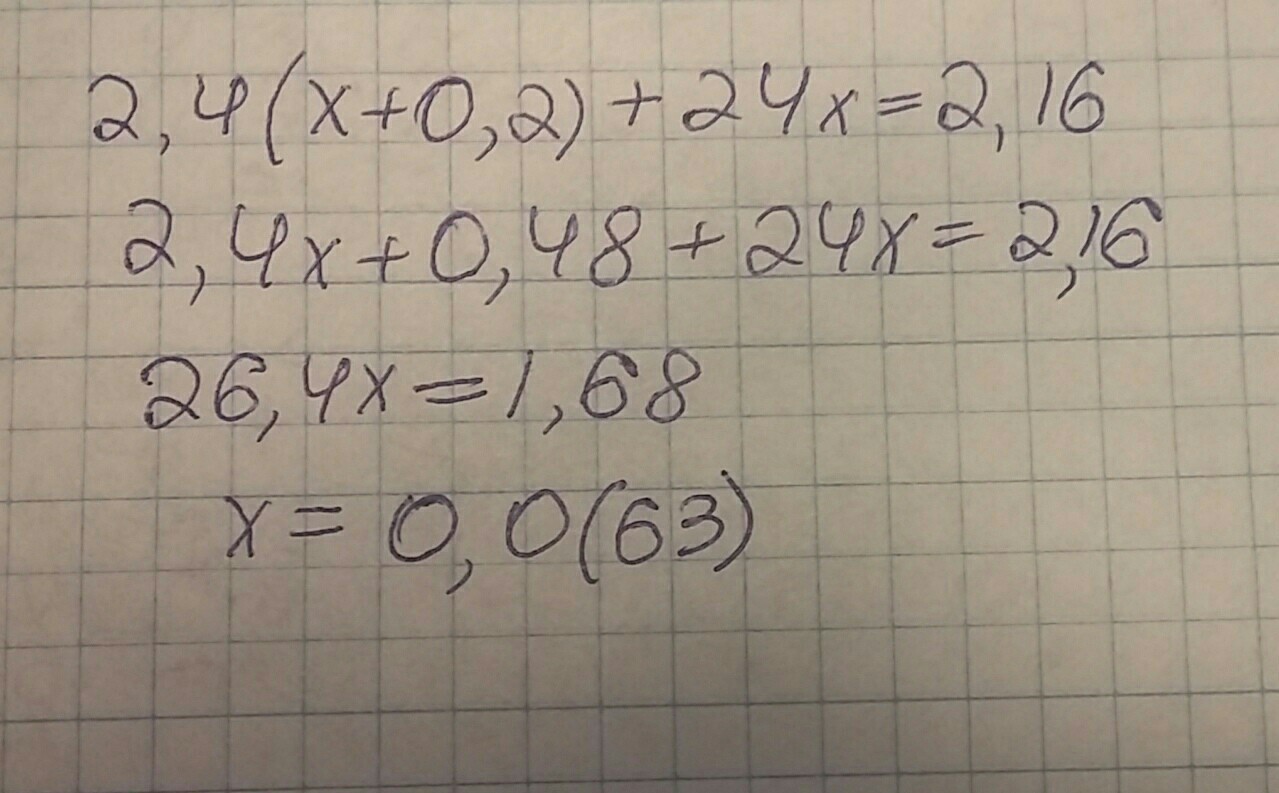 2,4(x+0,2)+24x=2,16
2,4x+0,48+24x=2,16
26,4x=1,68
x=0,0(63)